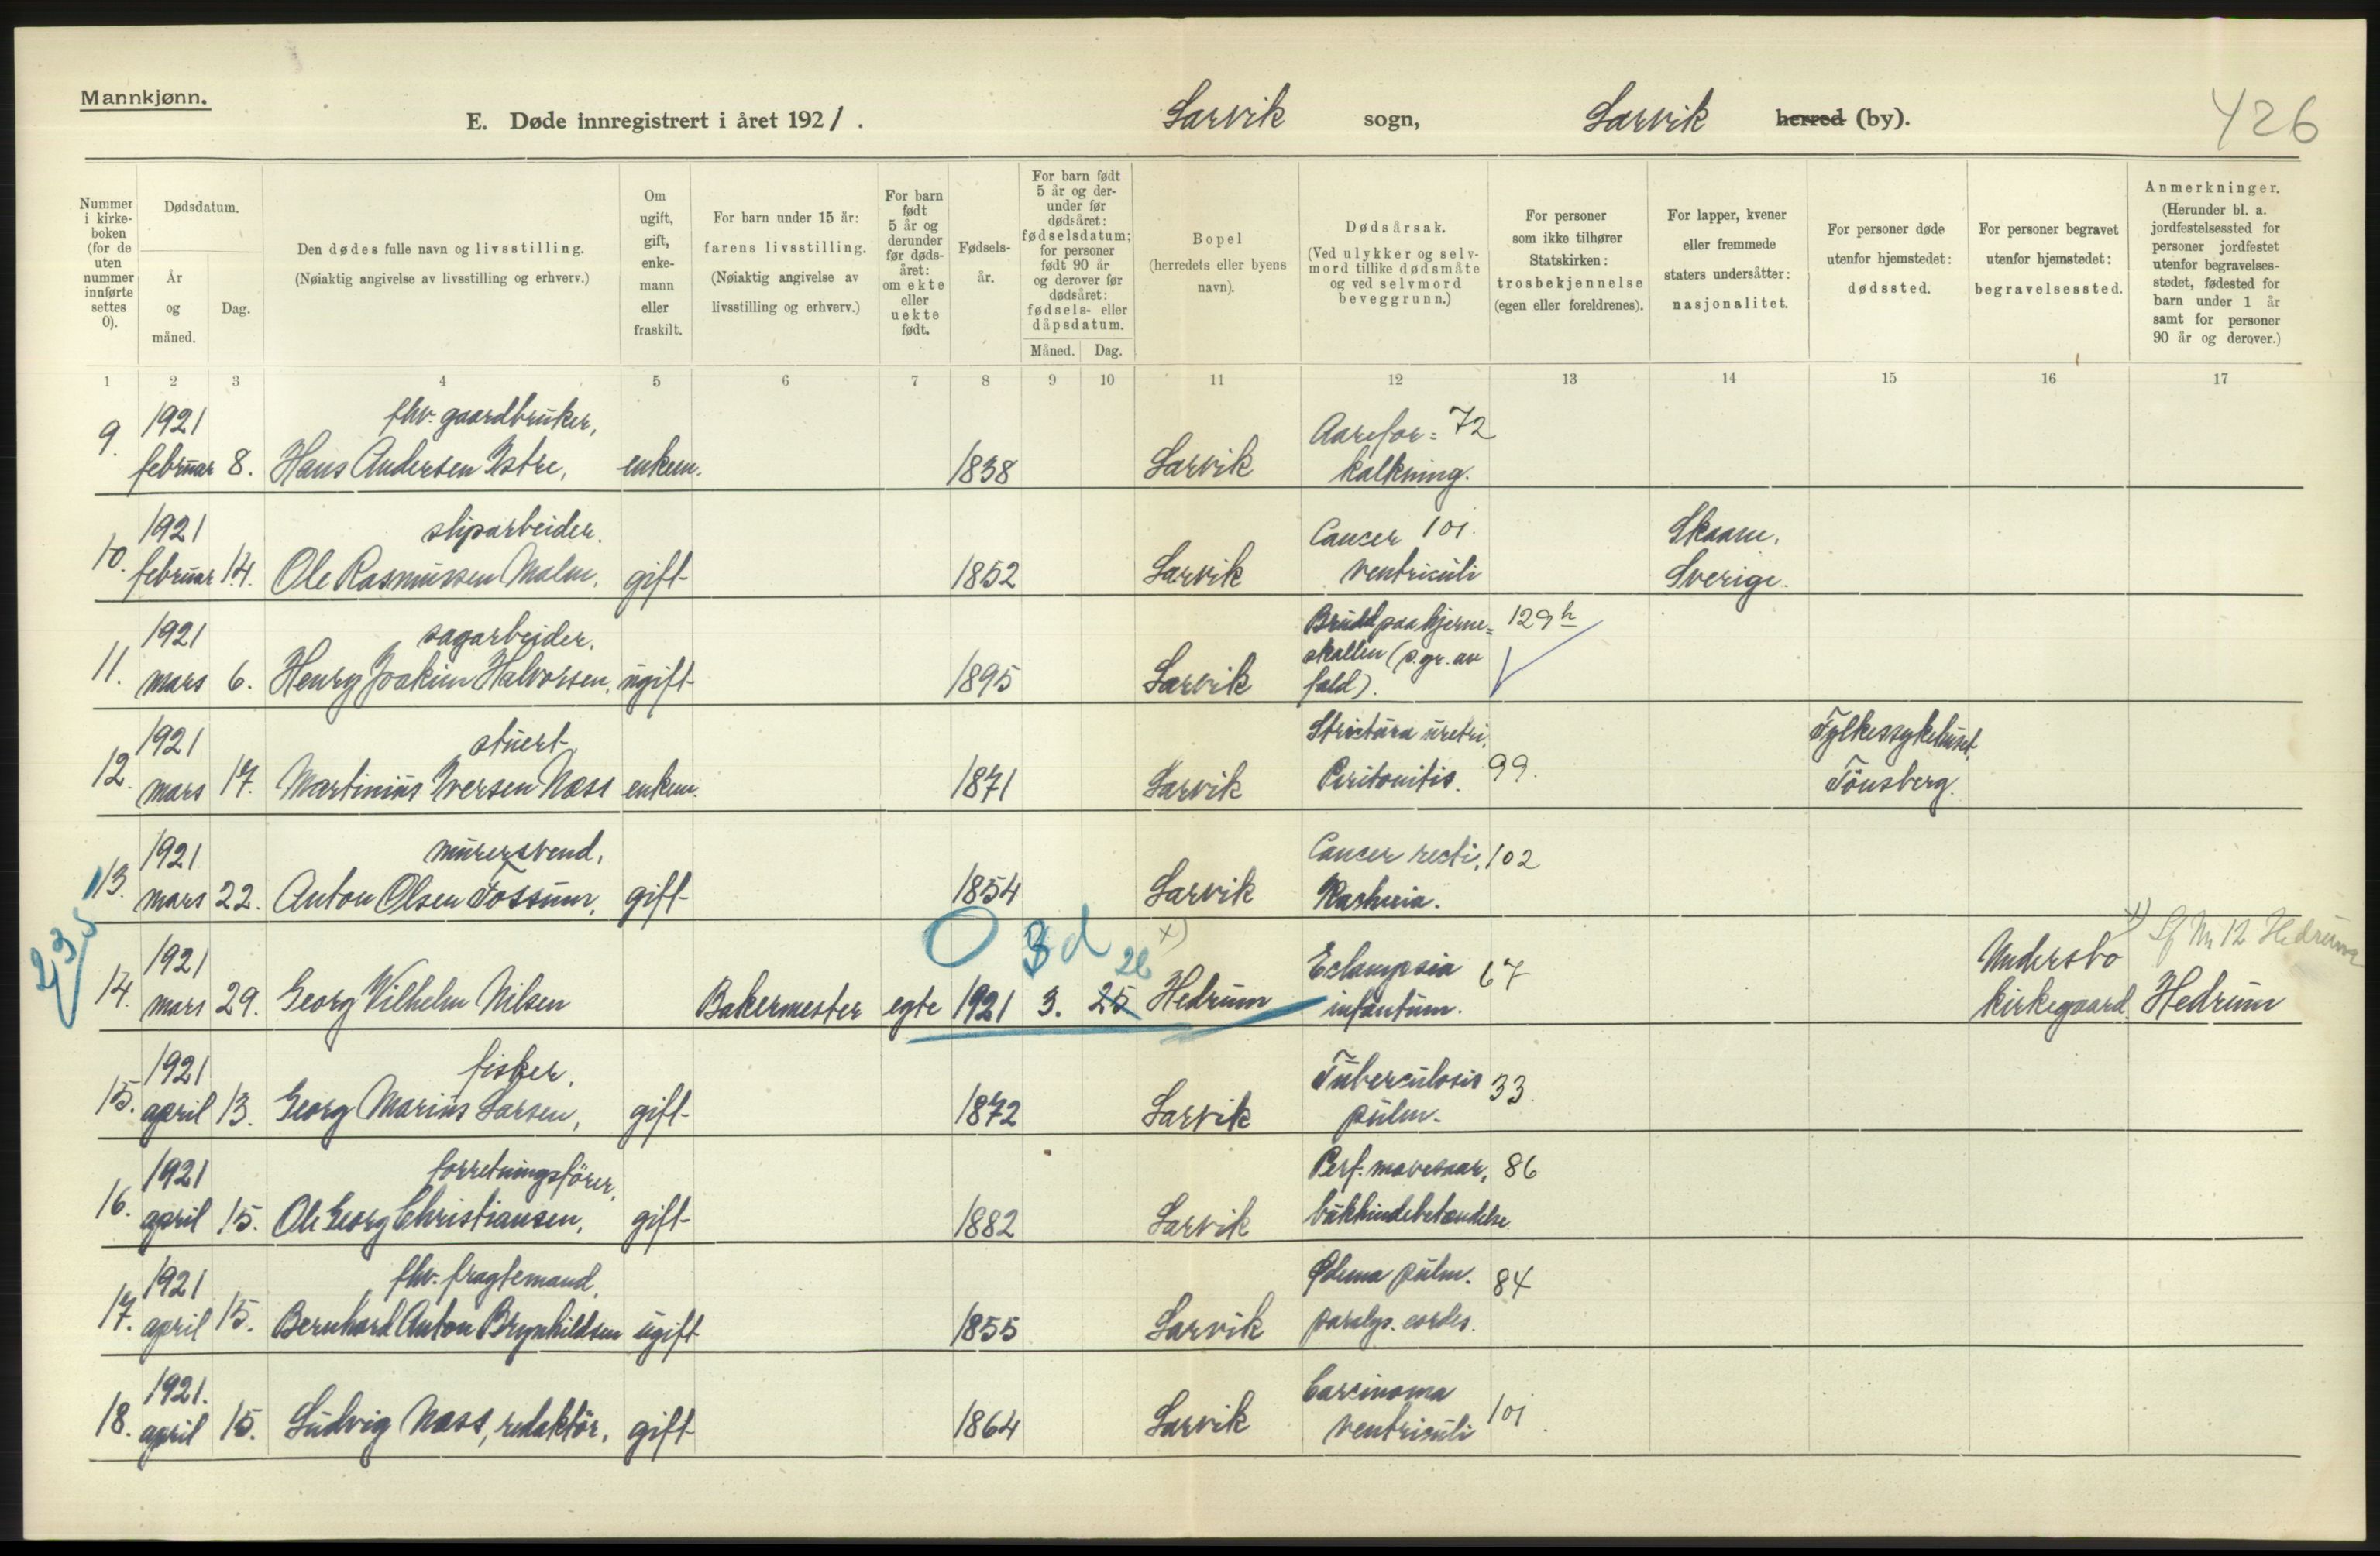 Mannkjønn.
E. Døde innregistrert i året 1921.
Larvik sogn, Larvik herred (by).
426
Nummer i kirke-boken (for de uten nummer innførte settes 0).
Dødsdatum.
År og måned.
Dag.
Den dødes fulle navn og livsstilling.
(Nøiaktig angivelse av livsstilling og erhverv.)
Om ugift, gift, enke-mann eller fraskilt.
For barn under 15 år: farens livsstilling.
(Nøiaktig angivelse av livsstilling og erhverv.)
For barn født 5 år og derunder før døds-året: om ekte eller uekte født.
Fødsels-år.
For barn født 5 år og der-under før dødsåret: fødselsdatum; for personer født 90 år og derover før dødsåret: fødsels- eller dåpsdatum.
Måned. Dag.
Bopel (herredets eller byens navn).
Dødsårsak.
(Ved ulykker og selv-mord tillike dødsmåte og ved selvmord beveggrunn.)
For personer som ikke tilhører Statskirken: trosbekjennelse (egen eller foreldrenes).
For lapper, kvener eller fremmede staters undersåtter: nasjonalitet.
For personer døde utenfor hjemstedet: dødssted.
For personer begravet utenfor hjemstedet: begravelsessted.
Anmerkninger.
(Herunder bl. a. jordfestelsessted for personer jordfestet utenfor begravelses-stedet, fødested for barn under 1 år samt for personer 90 år og derover.)
1 2 3 4 5 6 7 8 9 10 11 12 13 14 15 16 17
1921 fhv. gaardbruker, Aarefor= 72
9. februar 8. Hans Andersen Istre, enkem. 1838 Larvik kalkning.
1921 sliparbeider. Cancer 101. Skaane,
10. februar 14. Ole Rasmussen Malm, gift 1852 Larvik ventriculi Sverige.
1921 sagarbeider. Brudd paa hjerne= 129 h
11. mars 6. Henry Joakim Halvorsen, ugift 1895 Larvik skallen (p.gr. av fald).
1921 stuert Strictura uretri, Fylkessykehuset,
12. mars 17. Martinius Iversen Næss enkem. 1871 Larvik Peritonitis. 99. Tönsberg.
1921 murersvend, Cancer recti. 102
13. mars 22. Anton Olsen Fossum, gift 1854 Larvik Kachexia.
235
O 3 d 26 x)
1921 Eclampsia 67 Undersbo x) Sf Nr 12 Hedrum
14. mars 29. Georg Wilhelm Nilsen Bakermester egte 1921 3. 25 Hedrum infantum. kirkegaard. Hedrum
1921 fisker. Tuberculosis 33
15. april 13. Georg Marius Larsen, gift 1872 Larvik pulm.
1921 forretningsförer, Perf. mavesaar, 86
16. april 15. Ole Georg Christiansen, gift 1882 Larvik bukhindebetændelse.
1921 fhv. fragtemand, Ødema pulm. 84
17. april 15. Bernhard Anton Brynhildsen ugift 1855 Larvik paralys. cordis.
1921. Carcinoma
18. april 15. Ludvig Næss, redaktör, gift 1864 Larvik ventriculi 101.